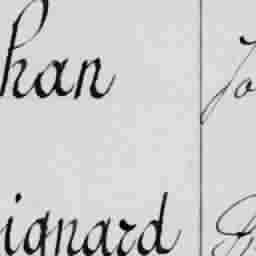 han Jo
ignard